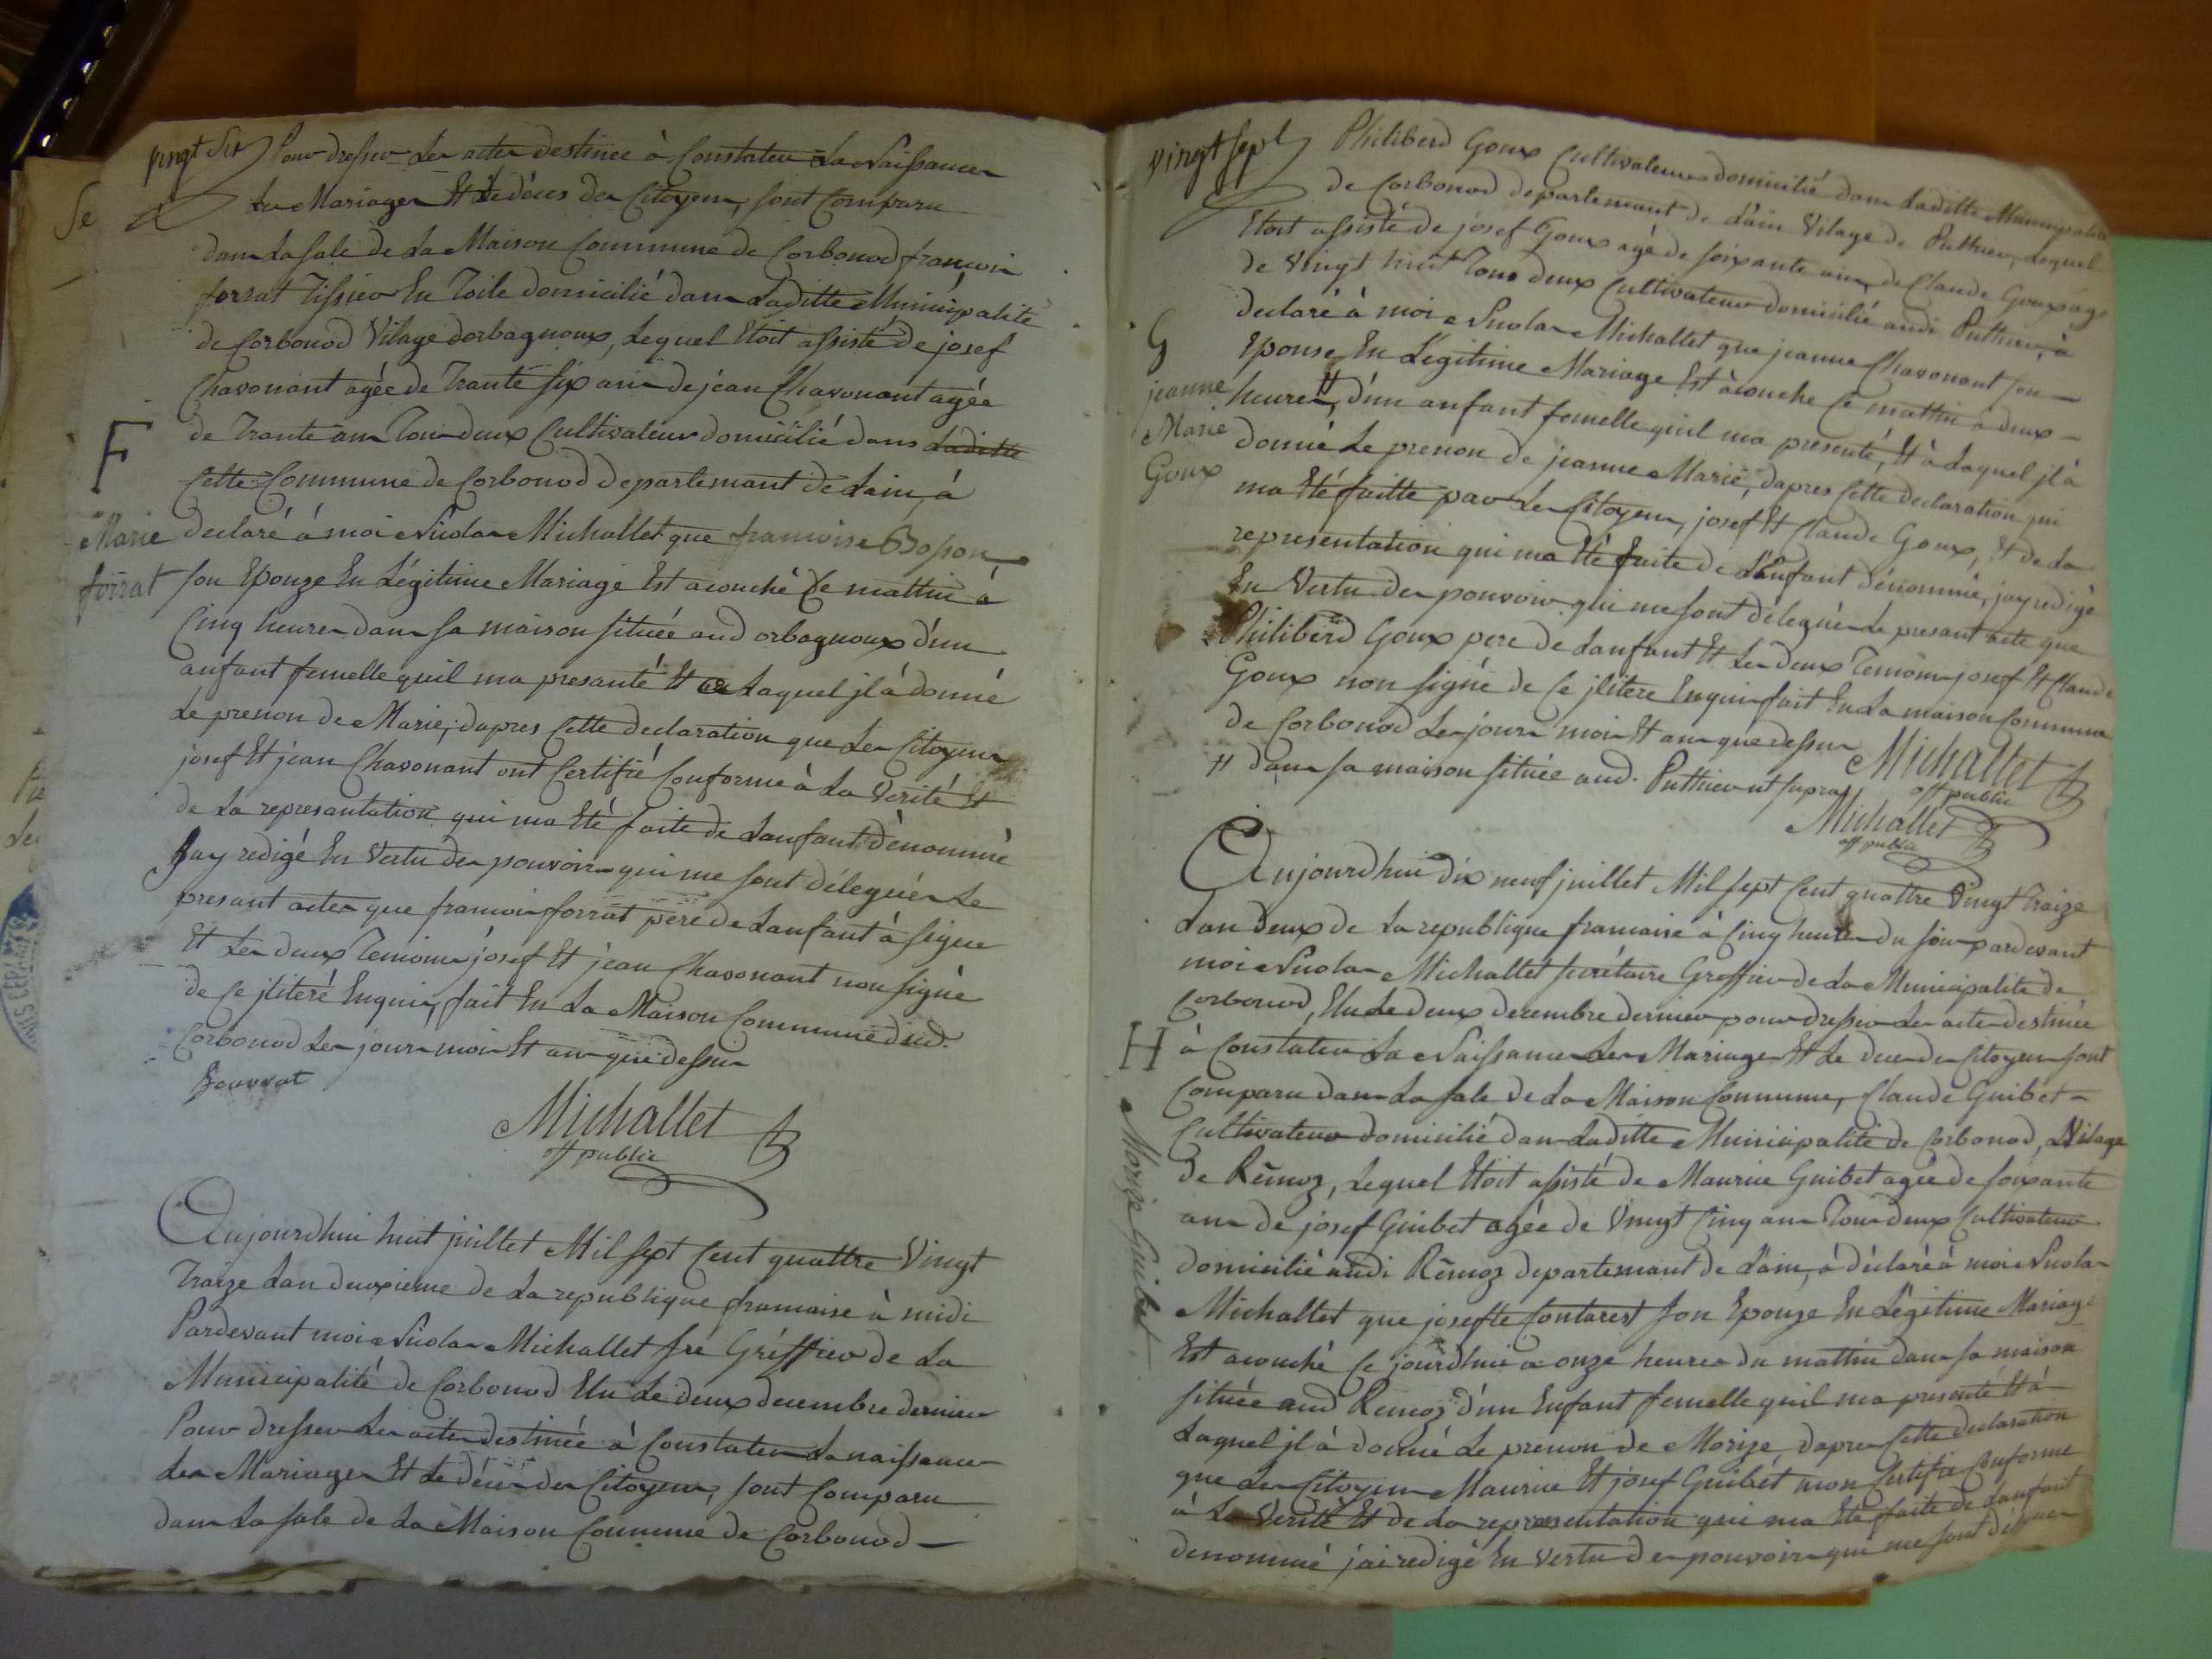 vingt six
Pour dresser Les actes destinee à Constater La Naissance
Les Mariages Et Le déces des Citoyens, sont Comparu
dans La sale de La Maison Commune de Corbonod françois
forrat Tissier En Toile domicilié dans Laditte Municipalité
de Corbonod Vilage dorbagnoux, Lequel Etoit assisté de josef
Chavonant agée de Trante six ans de jean Chavonant agée
de Trante ans Tous deux Cultivateur domicilié dans Laditte
Cette Commune de Corbonod Departemant de Lain, à
declaré à moi Nicolas Michallet que francoise Bosson
son Epouze En Légitime Mariage Est acouché Ce mattin à
Cinq heures dans sa maison située aud orbagnoux d'un
anfant femelle quil ma presanté Et a Laquel jl à donné
Le prenon de Marie, dapres Cette declaration que Les Citoyens
josef Et jean Chavonant ont Certifié Conforme à La Verité Et
de La representation qui ma Eté faite de Lanfant dénommé
Jay redigé En Vertu des pouvoirs qui me sont délegués Le
presant actes que francois forrat pere de Lanfant à signe
Et Les deux Temoins josef Et jean Chavonant non signé
de Ce jliteré Enquis, fait En La Maison Commune dud.
Corbonod Les jours mois Et an que dessus
F
Marie
forrat
fourrat
Michallet
off public
Aujourdhui huit juillet Mil sept Cent quattre Vingt
Traize Lan deuxieme de La republique francaise à midi
Pardevant moi Nicolas Michallet sré Gréffier de La
Municipalité de Corbonod Elu Le deux decembre dernier
Pour dresser Les actes destinée à Constater La naissance
Les Mariages Et Le déces des Citoyens, sont Comparu
dans La sale de La Maison Commune de Corbonod
vingt sept
Philiberd Goux Cultivateur domicilié dans Laditte Municipalité
de Corbonod departemant de L'ain Vilage de Puthier, Lequel
Etoit assisté de josef Goux agé de soixante ans, de Claude Goux agé
de Vingt huit Tous deux Cultivateur domicilié audi Puthier, à
declaré à moi Nicolas Michallet que jeanne Chavonant son
Epouse En Légitime Mariage Est àcouche Ce mattin à deux
heures H, d'un anfant femelle quil ma presenté, Et à Laquel jl à
donné Le prenon de jeanne Marie, dapres Cette declaration qui
ma Eté faitte par Les Citoyens, josef Et Claude Goux, Et de La
representation qui ma Eté faite de L'Enfant dénommé, jay redigé
En Vertu des pouvoir qui me sont délegués Le presant acte que
Philiberd Goux pere de Lanfant Et Les deux Temoins josef Et Claude
Goux non signé de Ce jlitere Enquis fait En La maison Commune
de Corbonod Les jours mois Et an que dessus
H dans sa maison située aud. Puthier ut supra
G
jeanne
Marie
Goux
Michallet
off public
Michallet
off public
Aujourdhui dix neuf juillet Mil sept Cent quattre Vingt Traize
Lan deux de La republique francaise à Cinq heures du soir pardevant
moi Nicolas Michallet secrétaire Greffier de La Municipalité de
Corbonod, Elu Le deux decembre dernier pour dresser Les actes destinée
à Constater La Naissance Les Mariages Et Le deces des Citoyens sont
Comparu dans La sale de La Maison Commune, Claude Guibet
Cultivateur domicilié dans Laditte Municipalité de Corbonod, Vilage
de Rémoz, Lequel Etoit assisté de Maurice Guibet agée de soixante
ans de josef Guibet agée de Vingt Cinq ans Tous deux Cultivateur
domicilié audi Rémoz departemant de L'ain, à déclaré à moi Nicolas
Michallet que josefte Contarest son Epouze En Légitime Mariage
Est acouché Ce jourdhui a onze heures du mattin dans sa maison
située aud Remoz d'un Enfant femelle quil ma presenté Et à
Laquel jl à donné Le prenon de Morize, dapres Cette declaration
que Les Citoyens Maurice Et josef Guibet mon Certifié Conforme
à La Verité Et de La representation qui ma Eté faite de Lanfant
denommé jai redigé En Vertu des pouvoirs qui me sont
H
Morize Guibet